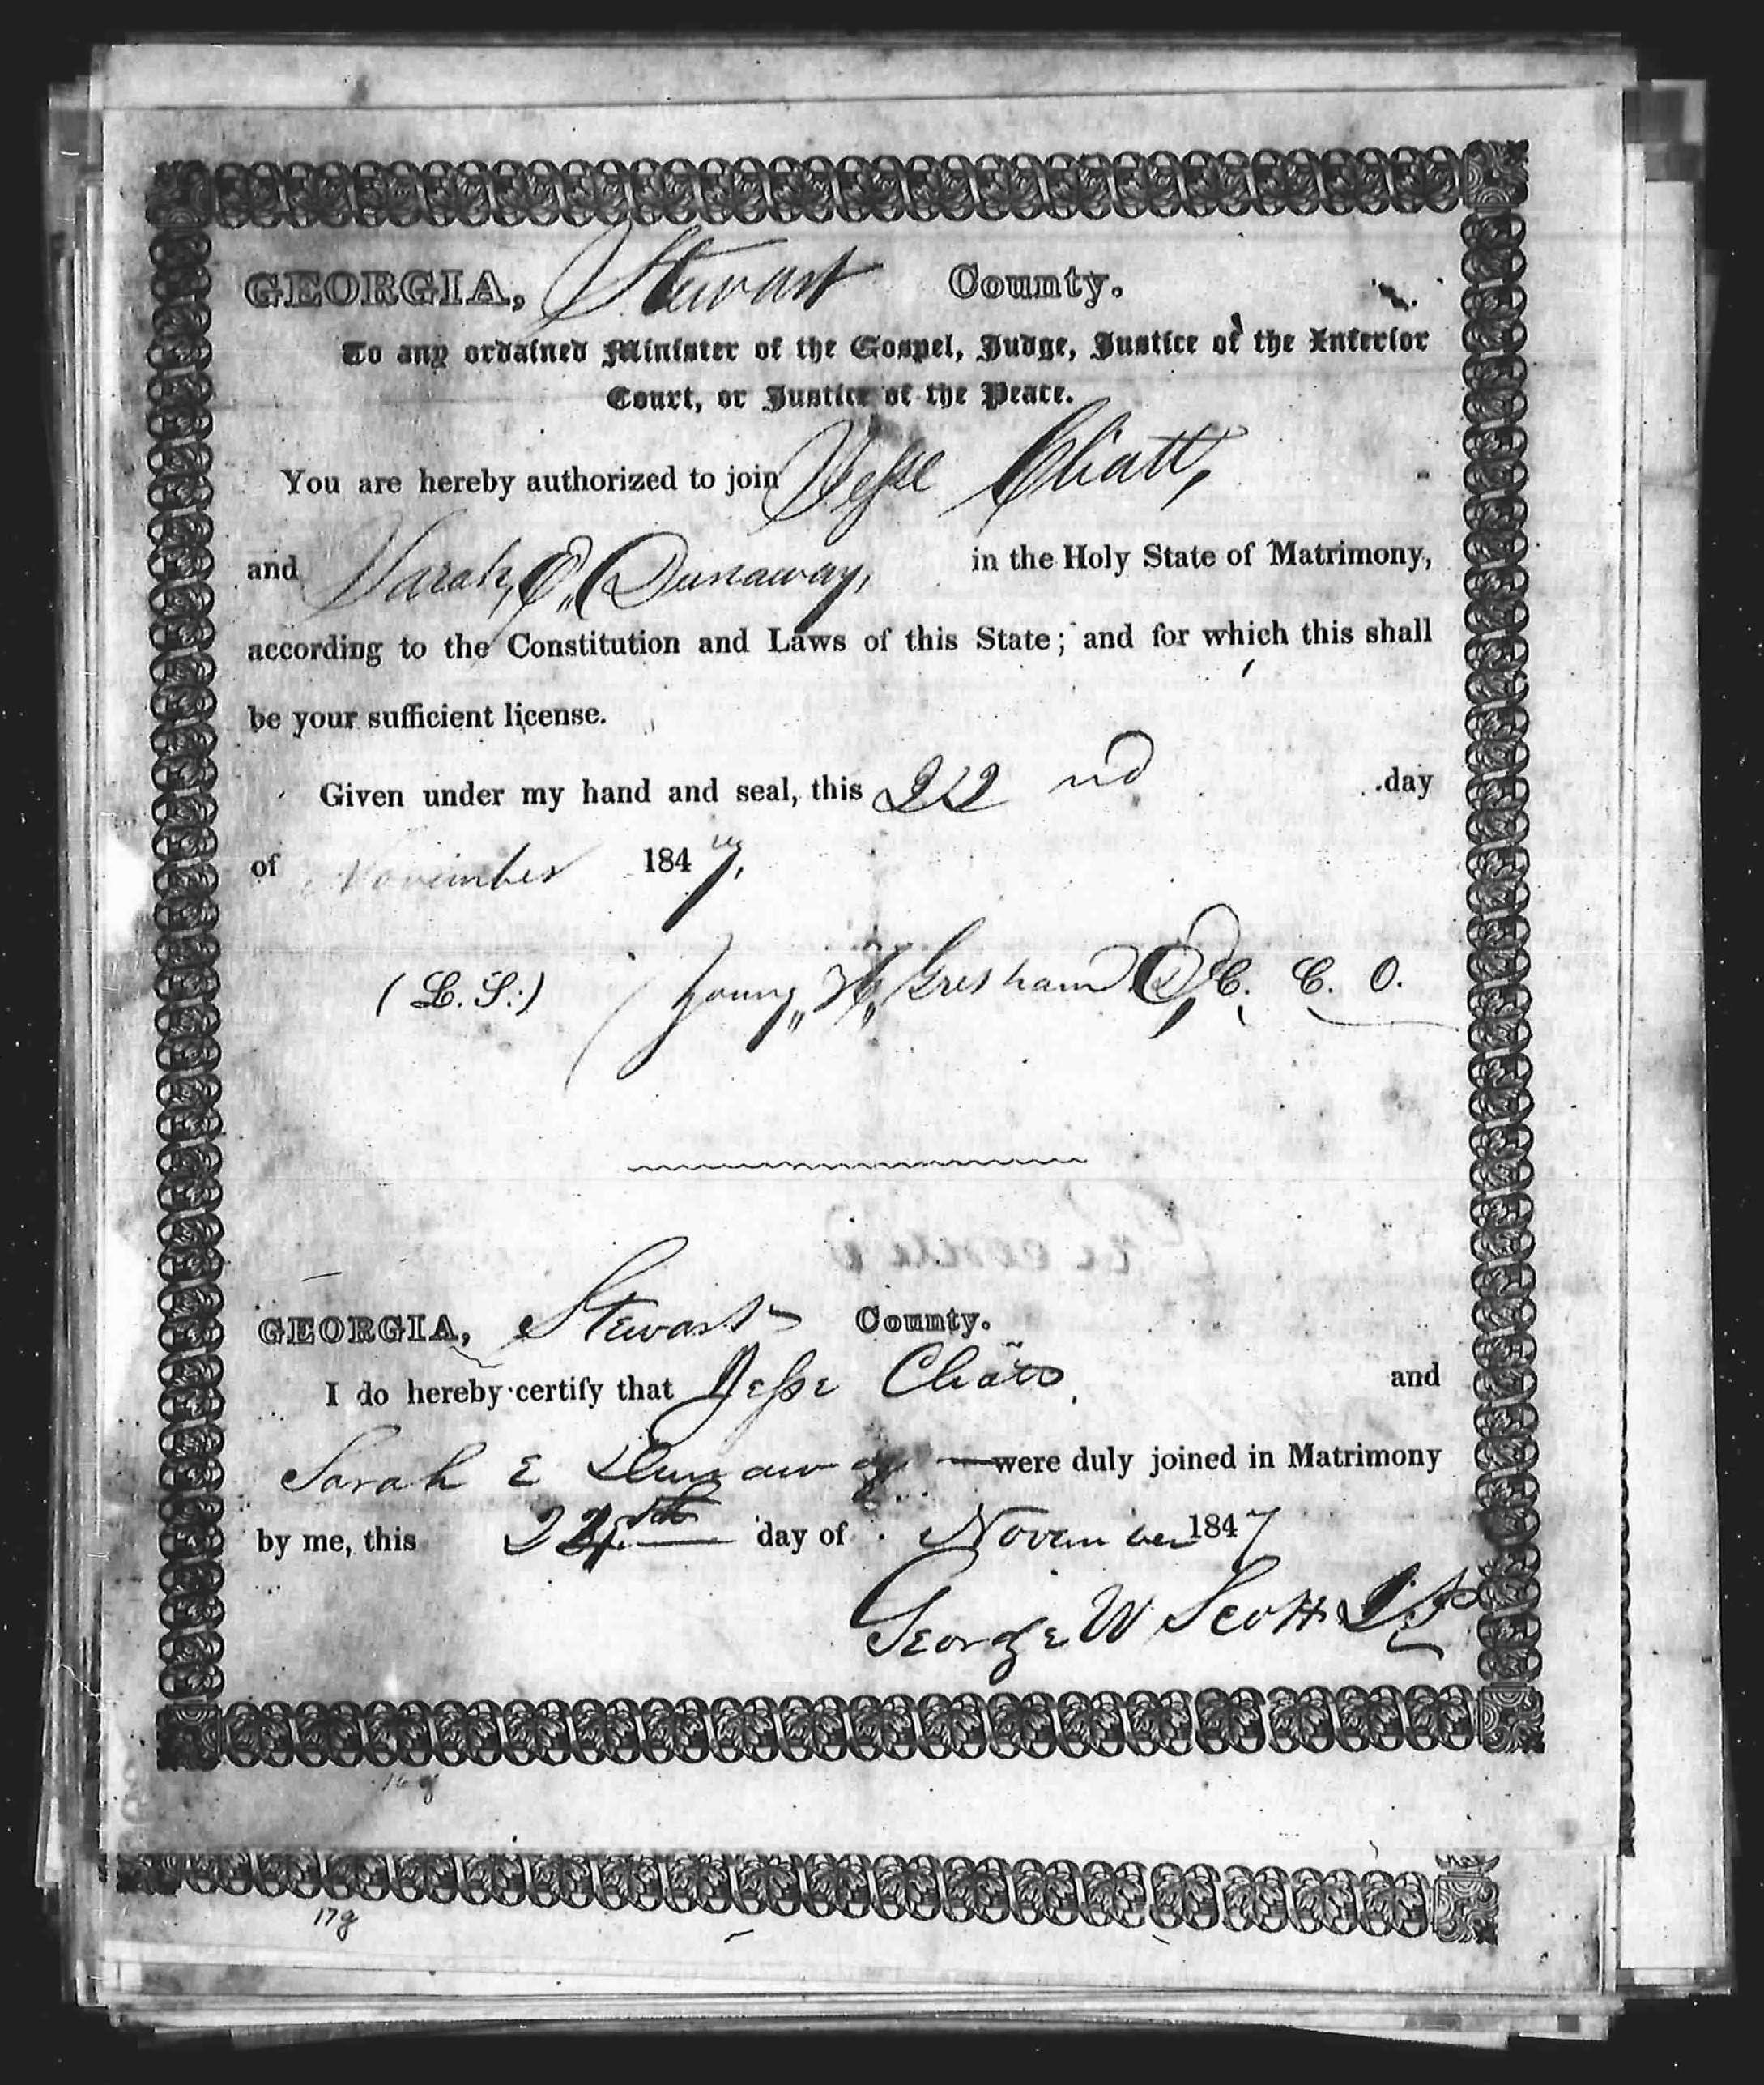 GEORGIA, Stewart County.
To any ordained Minister of the Gospel, Judge, Justice of the Inferior
Court, or Justice of the Peace.
You are hereby authorized to join Jesse Chiatt,
and Sarah, E,, Dunaway, in the Holy State of Matrimony,
according to the Constitution and Laws of this State; and for which this shall
be your sufficient license.
Given under my hand and seal, this 22nd day
of November 1847,
(L. S.:) Young,, H,, Gresham D, C. C. O.
GEORGIA, Stewart County.
I do hereby certify that Jesse and
Sarah E Dunaway were duly joined in Matrimony
by me, this day of November 1847
George W Scott J.P
16g
17g